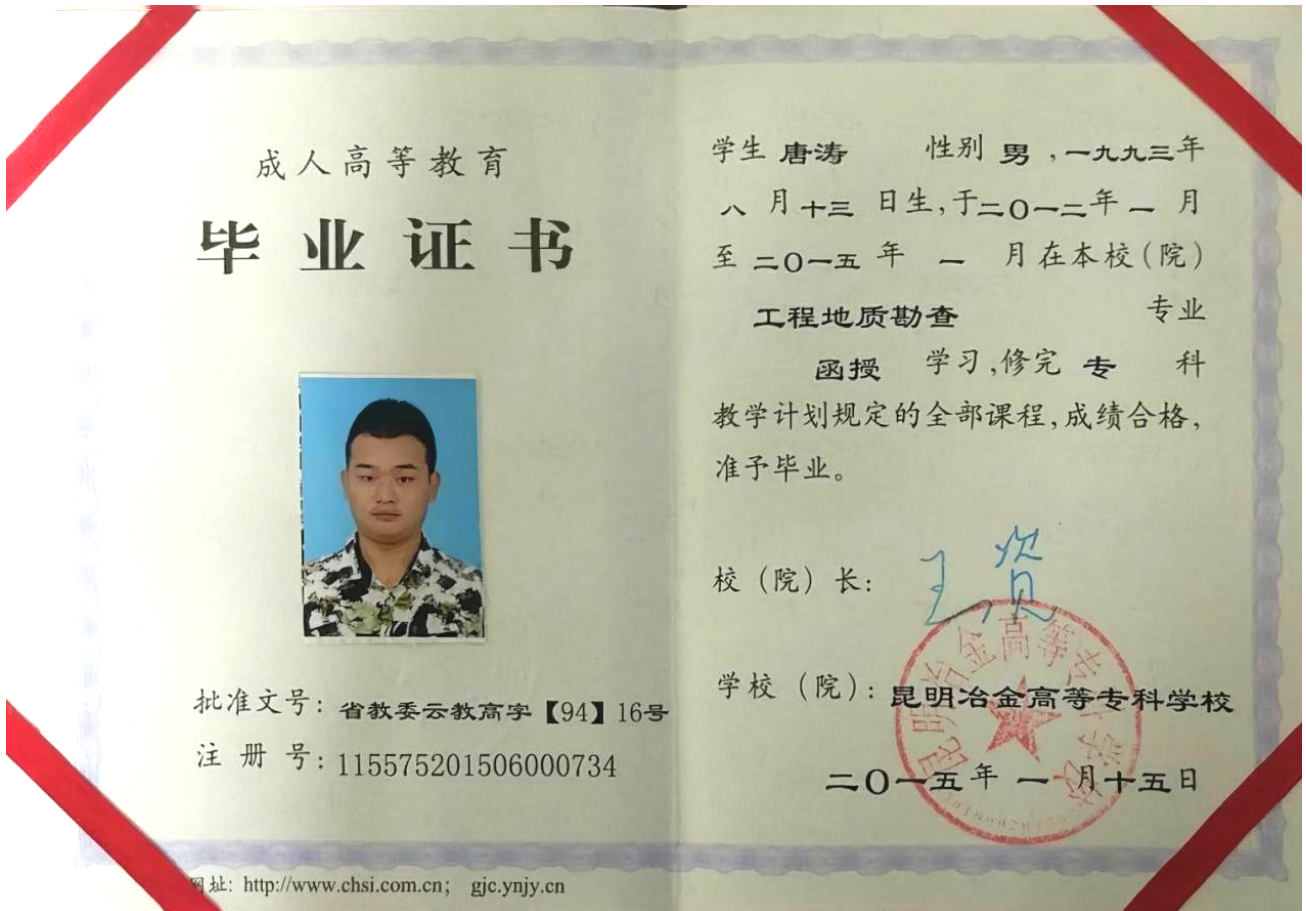 成人高等教育
毕业证书
批准文号：省教委云教高字【94】16号
注 册 号：115575201506000734
网址: http://www.chsi.com.cn; gjc.ynjy.cn
学生 唐涛 性别 男，一九九三年
八 月 十三 日生，于二〇一二年 一 月
至 二〇一五 年 一 月在本校（院）
工程地质勘查 专业
函授 学习，修完 专 科
教学计划规定的全部课程，成绩合格，
准予毕业。
校（院）长：
学校（院）：昆明冶金高等专科学校
二〇一五年 一 月十五日
昆明冶金高等专科学校